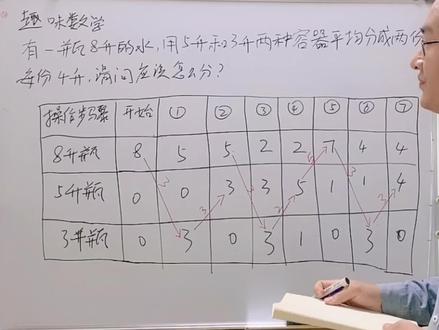 趣味数学
有一瓶8升的水，用5升和3升两种容器平均分成两份
每份4升，请问应该怎么分？
操作步骤 开始 ① ② ③ ④ ⑤ ⑥ ⑦
8升瓶 8 5 5 2 2 7 4 4
5升瓶 0 0 3 3 5 1 1 4
3升瓶 0 3 0 3 1 0 3 0